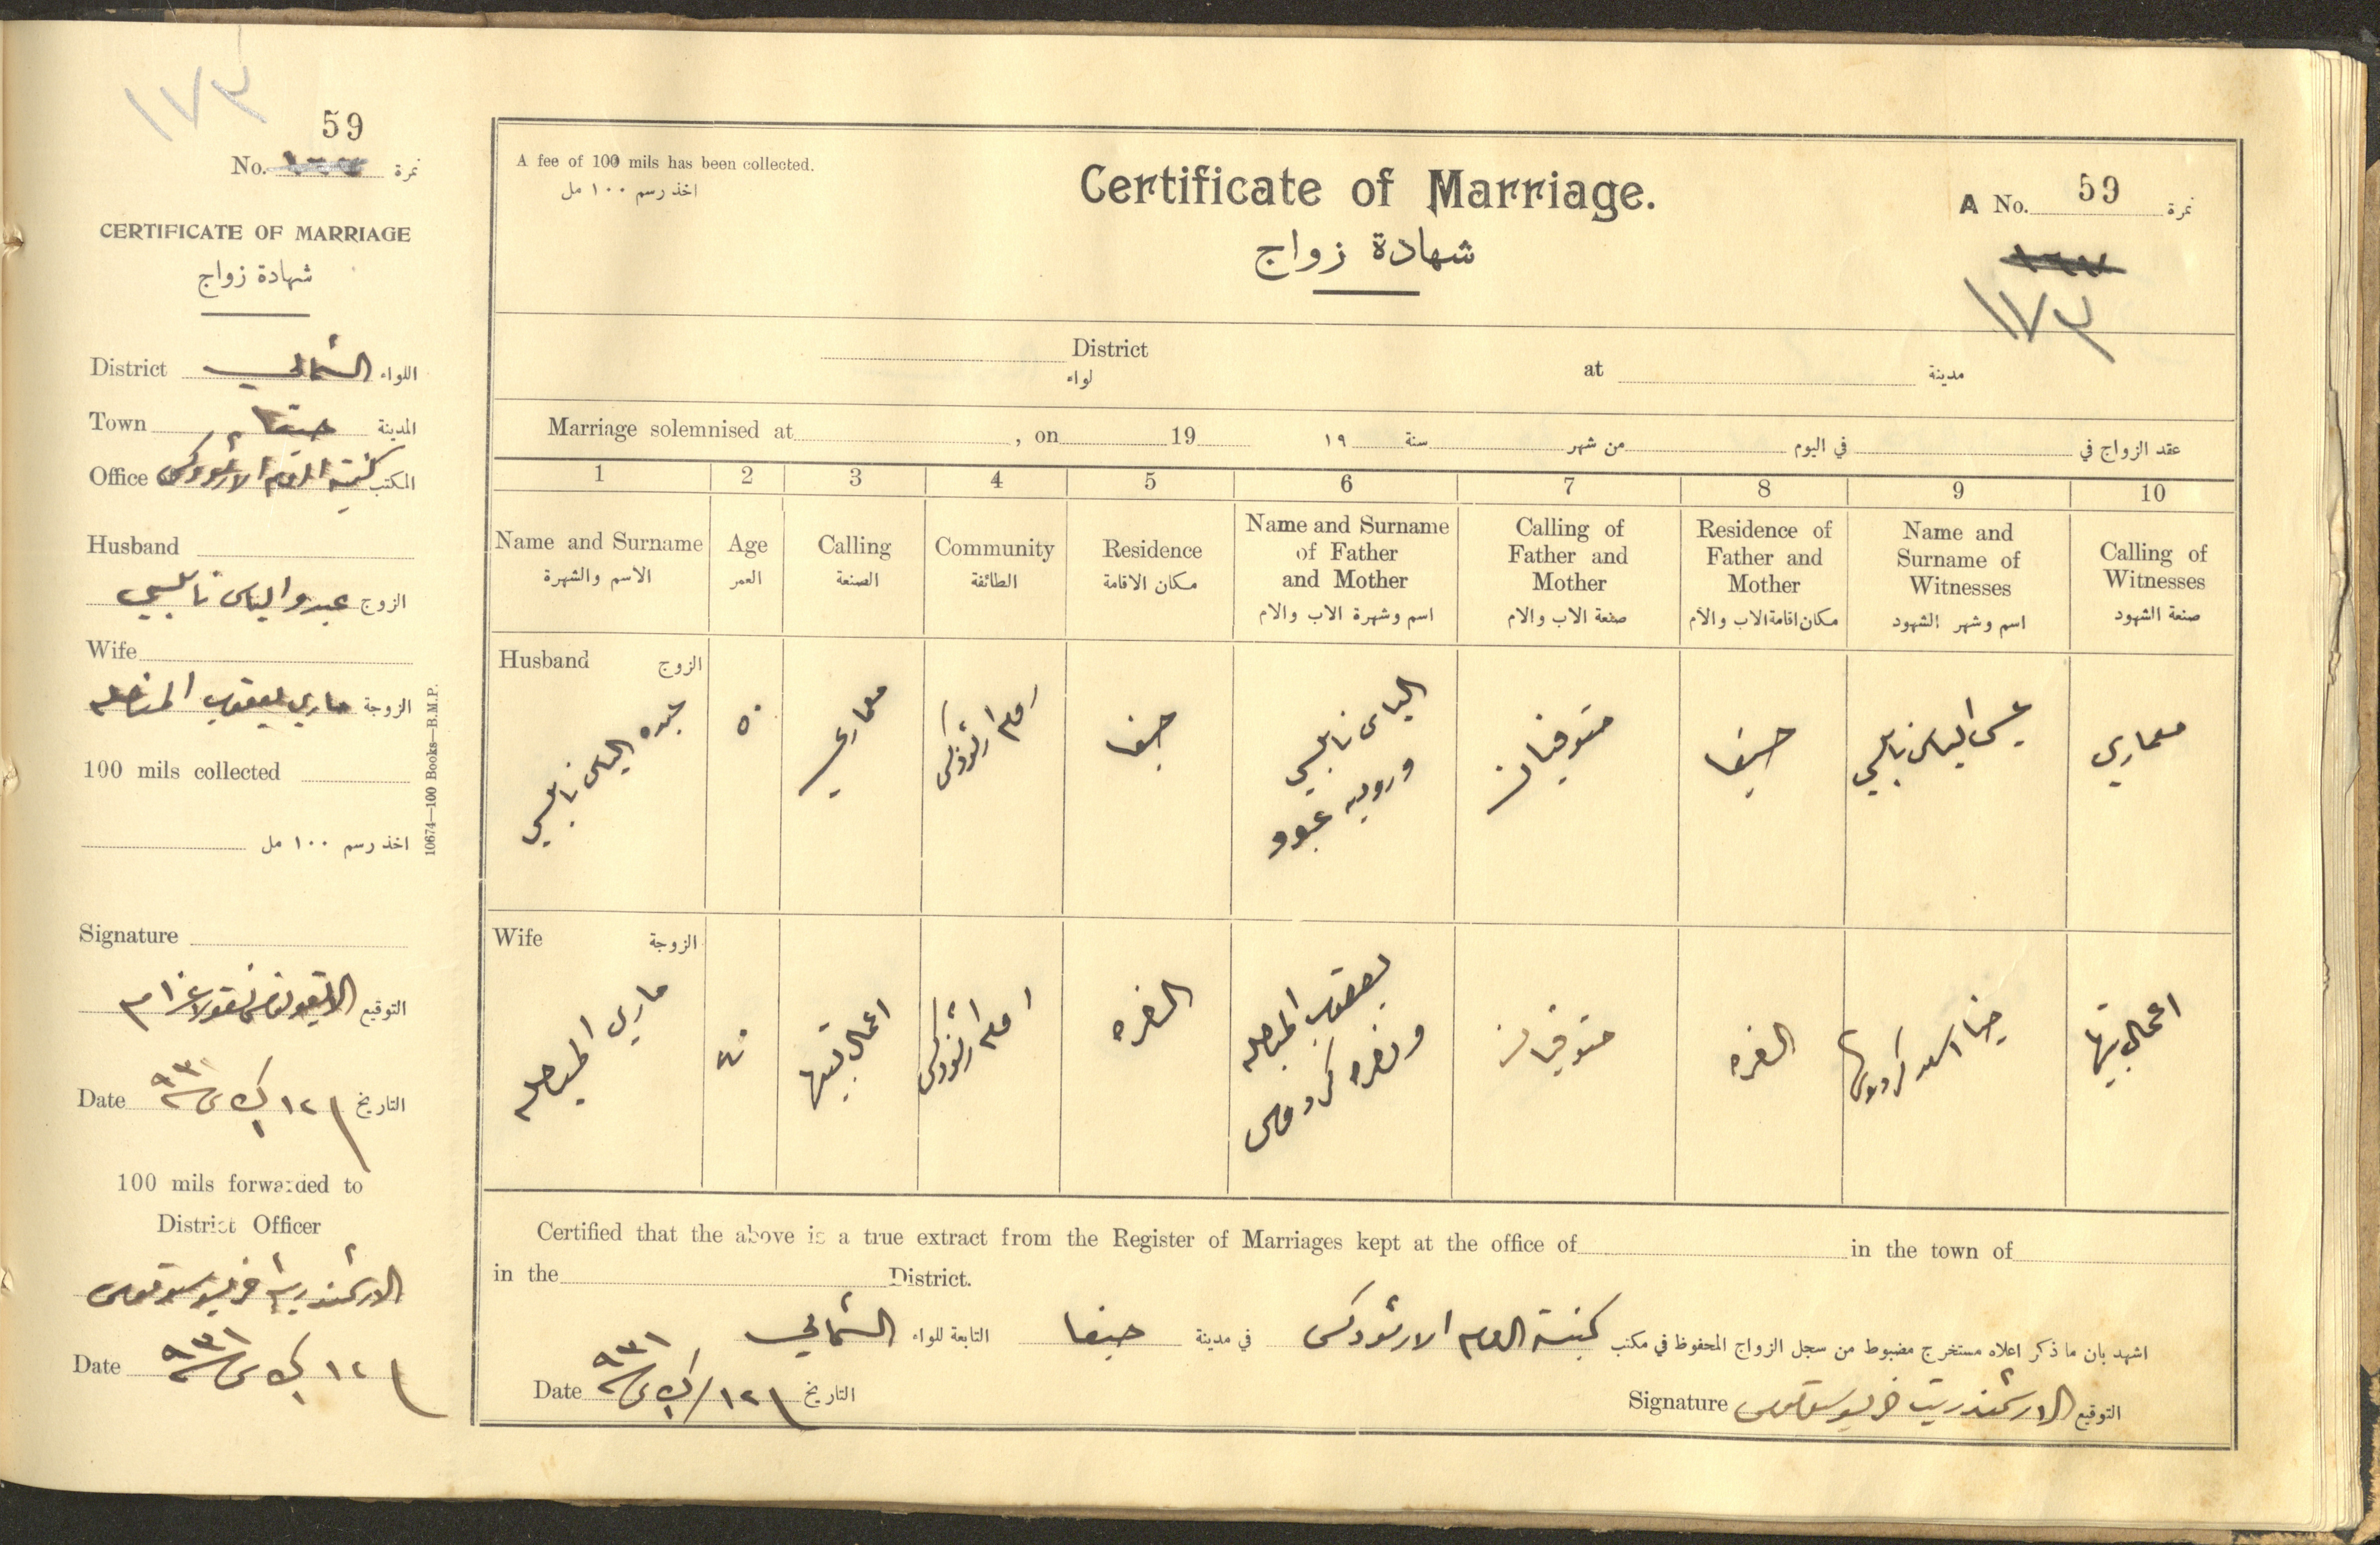 ١٧٣
59
No. نمرة
CERTIFICATE OF MARRIAGE
شهادة زواج
District الشمالي اللواء
Town حيفا المدينة
Office كنيسة الروم الارثوذكس المكتب
Husband
عبدو الياس نابلسي الزوج
Wife
ماري يعقوب الزوجة
100 mils collected
اخذ رسم ١٠٠ مل
Signature
التوقيع
Date ١٢ ك١ سنة ٩٣١ التاريخ
100 mils forwarded to
District Officer
الارشمندريت
Date ١٢ ك١ سنة ٩٣١
10674—100 Books—B.M.P.
A fee of 100 mils has been collected.
اخذ رسم ١٠٠ مل
Certificate of Marriage.
شهادة زواج
A No. 59 نمرة
١٧٣
District
لواء
at مدينة
Marriage solemnised at , on 19 عقد الزواج في في اليوم من شهر سنة ١٩
1 2 3 4 5 6 7 8 9 10
Name and Surname
الاسم والشهرة
Age
العمر
Calling
الصنعة
Community
الطائفة
Residence
مكان الاقامة
Name and Surname
of Father
and Mother
اسم وشهرة الاب والام
Calling of
Father and
Mother
صنعة الاب والام
Residence of
Father and
Mother
مكان اقامة الاب والام
Name and
Surname of
Witnesses
اسم وشهر الشهود
Calling of
Witnesses
صنعة الشهود
Husband الزوج
عبده الياس نابلسي
٥٠
معماري
روم ارثوذكس
حيفا
الياس نابلسي
عبود
متوفيان
حيفا
عيسى الياس نابلسي
معماري
Wife الزوجة
ماري
٤٠
اعمال بيتها
روم ارثوذكس
الناصره
يعقوب
ونصره
متوفيان
الناصره
حنا اسعد
اعمال بيتها
Certified that the above is a true extract from the Register of Marriages kept at the office of in the town of
in the District.
اشهد بان ما ذكر اعلاه مستخرج مضبوط من سجل الزواج المحفوظ في مكتب كنيسة الروم الارثوذكس في مدينة حيفا التابعة للواء الشمالي
Date ١٢ / ك١ سنة ٩٣١ التاريخ
Signature الارشمندريت التوقيع